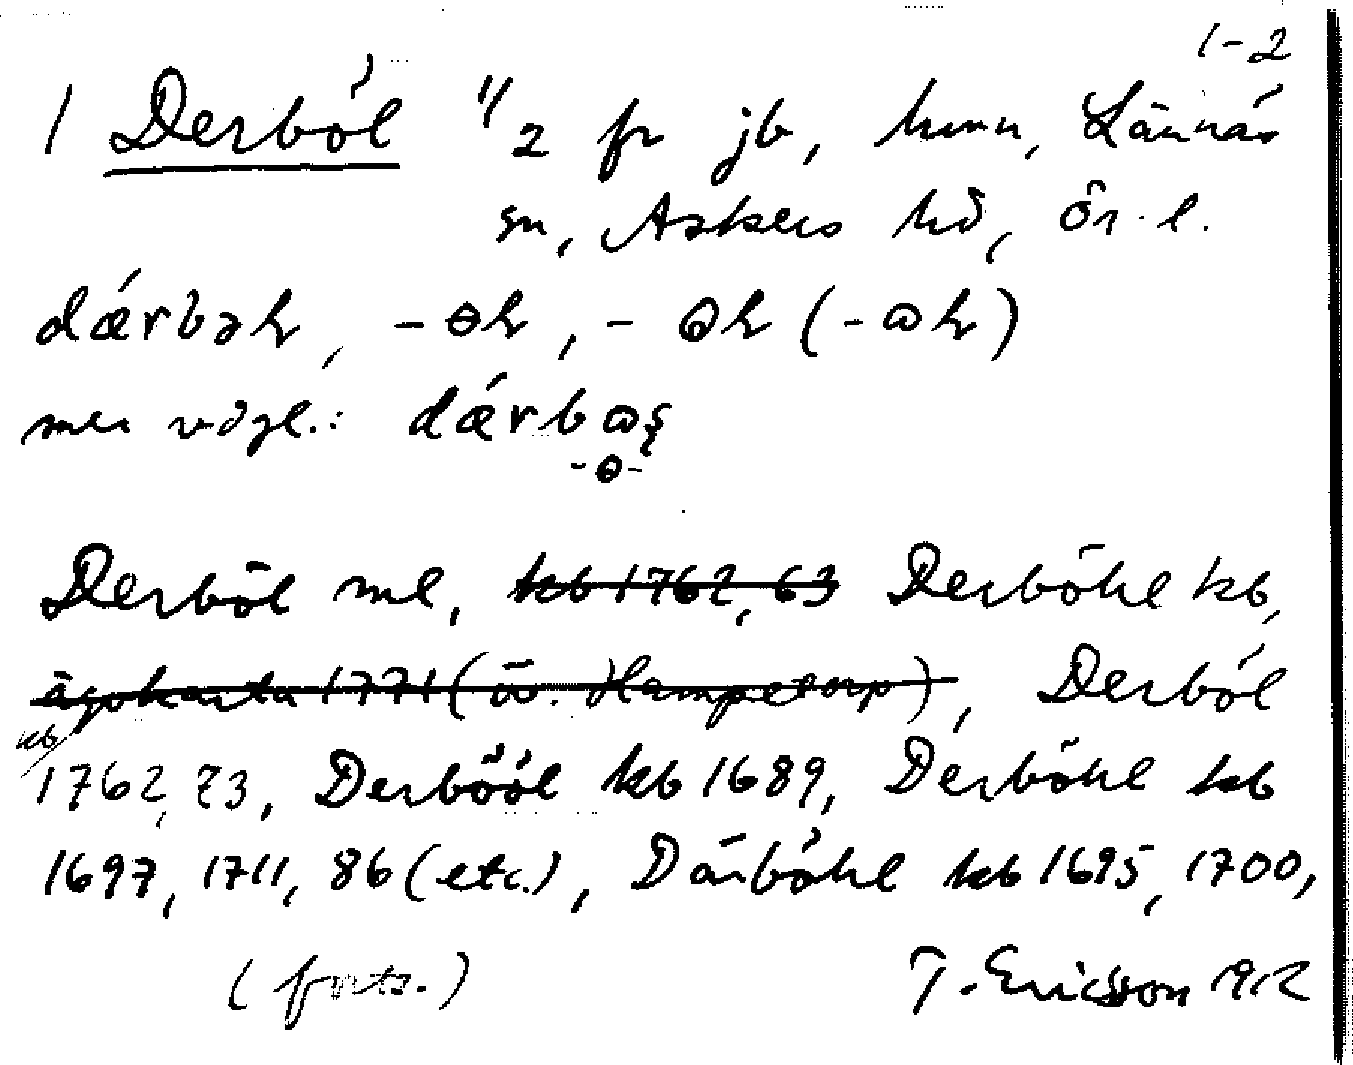 1-2
1 Derból 1/2 fr jb, hmn, Lännäs
sn, Askers hd, ör. l.
dǽrbəɫ, -ɵɫ,
mer vögl.: dǽrb
-ɵ-
Derböl ml, kb 1762, 63 Derböhl kb,
ägokarta 1771 (öv. Hampetorp), Derból
kb
1762, 73, Derböól kb 1689, Derböhl kb
1697, 1711, 86 (etc.), Därböhl kb 1695, 1700,
(forts.) T. Ericsson 1912